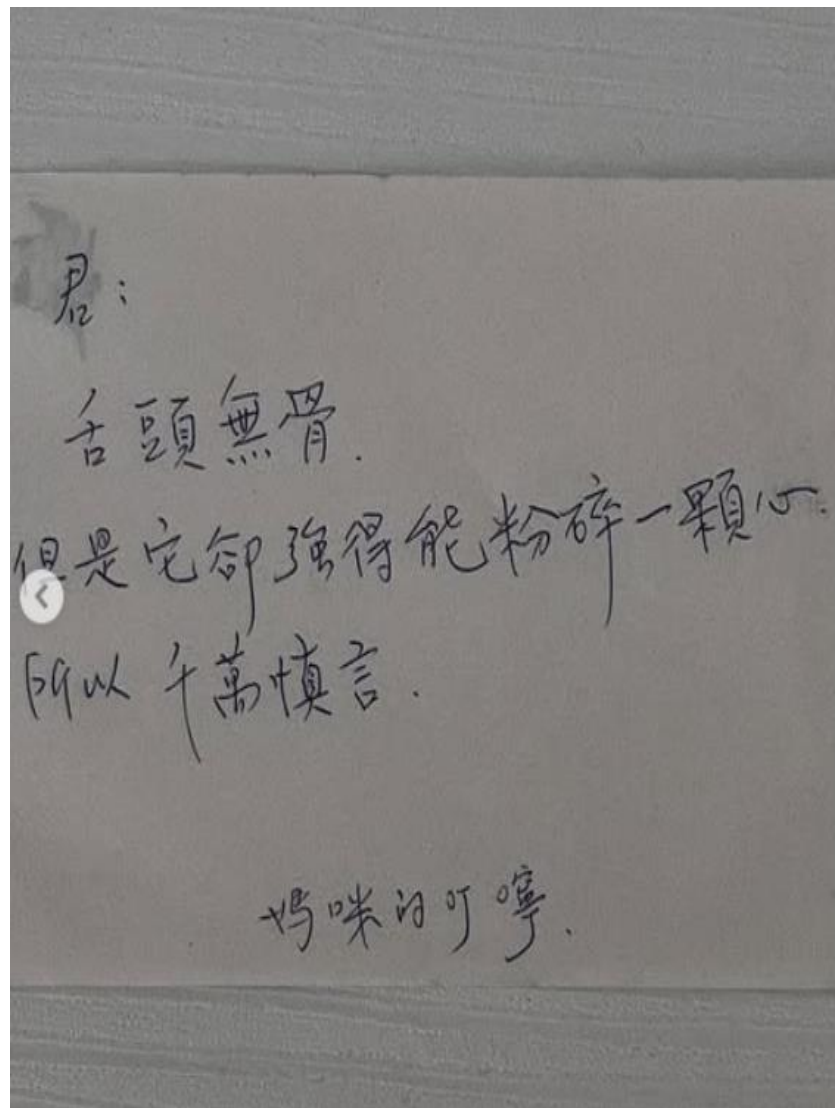 君：
舌頭無骨.
但是它卻強得能粉碎一顆心.
所以千萬慎言.
媽咪的叮嚀.